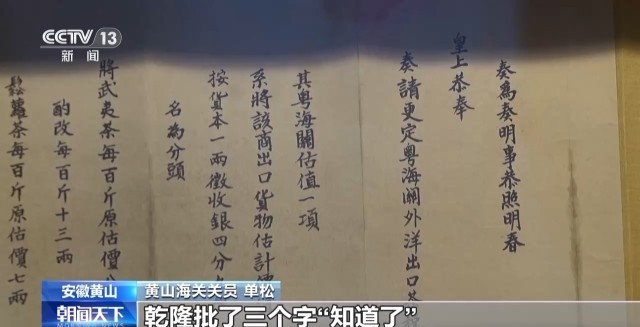 CCTV 13
新闻
奏為奏明事恭照明春
皇上恭奉
奏請更定粵海關外洋出口茶
其粵海關估值一項
系將該商出口貨物估計價
按貨本一兩徵收銀四分
名為分頭
將武夷茶每百斤原估價
酌改每百斤十三兩
鬆蘿茶每百斤原估價七兩
安徽黄山
黄山海关关员 单松
朝闻天下
乾隆批了三个字“知道了”